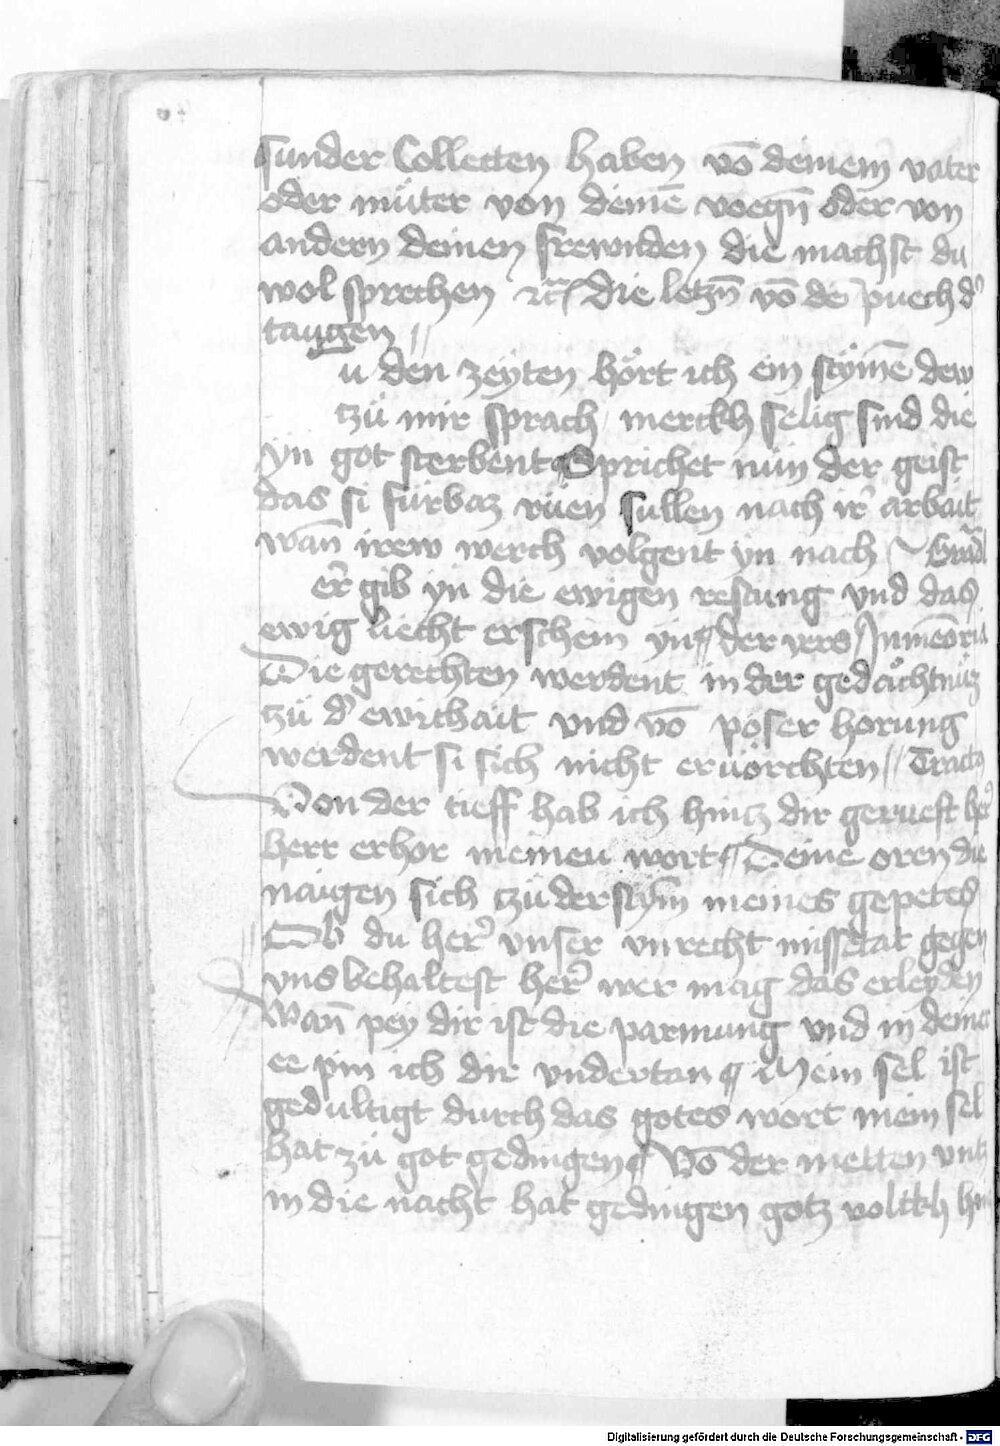 sunder Collecten haben vō deinem vater
oder müter von deinē voegn̄ oder von
andern deinen frewnden die machst du
wol sprechen ⁊c̄ die letzn̄ vō dē puech d'
taugen //
u den zeyten hört ich ein stym̄e dew
tzü mir sprach merckh selig sind die
yn got sterbent Sprichet nün der geist
das si fürbaz rüen süllen nach ir' arbait
wan̄ irew werch volgent yn nach
er̄ gib yn die ewigen restung vnd das
ewig liecht erschein yn // der vers In memōria
Die gerechten werdent in der gedächtnüz
tzü d' ewichait vnd vō pöser horung
werdent si sich nicht eruörchten // Tractus
Von der tieff hab ich hintz dir gerueft her'
herr erhor meinen wort // Deine oren die
naigen sich tzü der stym̄ meines gepetes
Ob du her' vnser vnrecht missetat gegen
vns behaltest her' wer mag das erleyden
Wan̄ pey dir ist die parmung vnd in deiner
ee pin ich dir vndertan // Mein sel ist
gedultigt durch das gotes wort mein sel
hat zü got gedingen // Vō der metten vntz
in die nacht hat gedingen gotz volckh
Digitalisierung gefördert durch die Deutsche Forschungsgemeinschaft - DFG